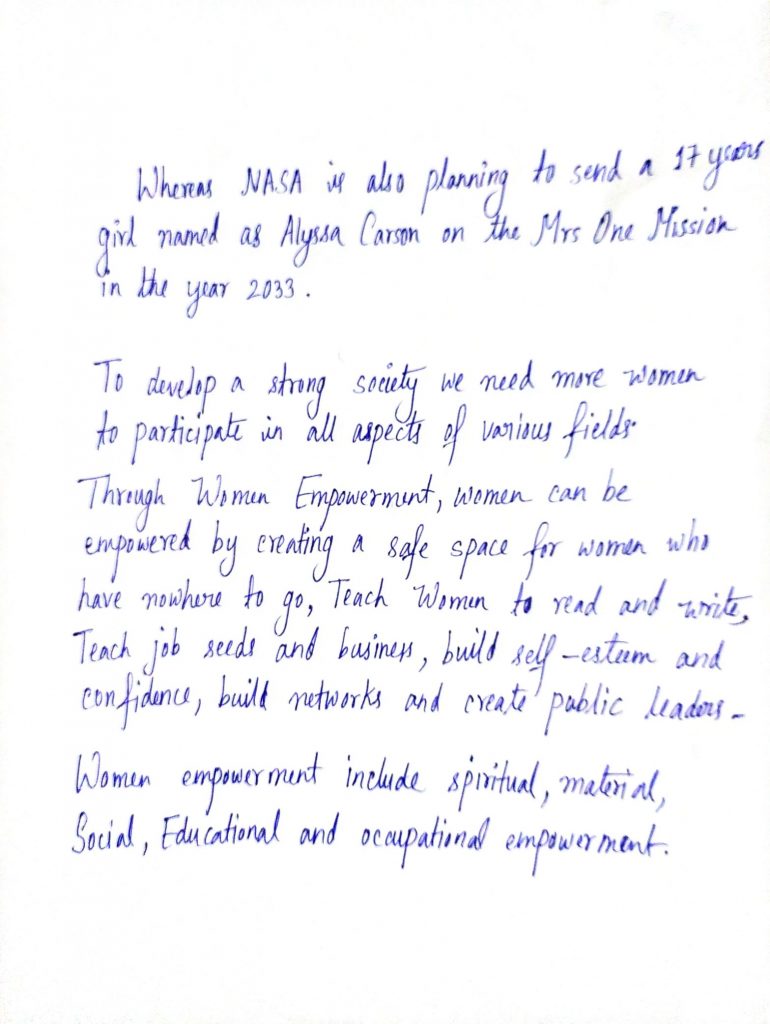 Whereas NASA is also planning to send a 17 years
girl named as Alyssa Carson on the Mrs One Mission
in the year 2033.
To develop a strong society we need more women
to participate in all aspects of various fields.
Through Women Empowerment, women can be
empowered by creating a safe space for women who
have nowhere to go, Teach Women to read and write,
Teach job seeds and business, build self-esteem and
confidence, build networks and create public leaders-
Women empowerment include spiritual, material,
Social, Educational and occupational empowerment.